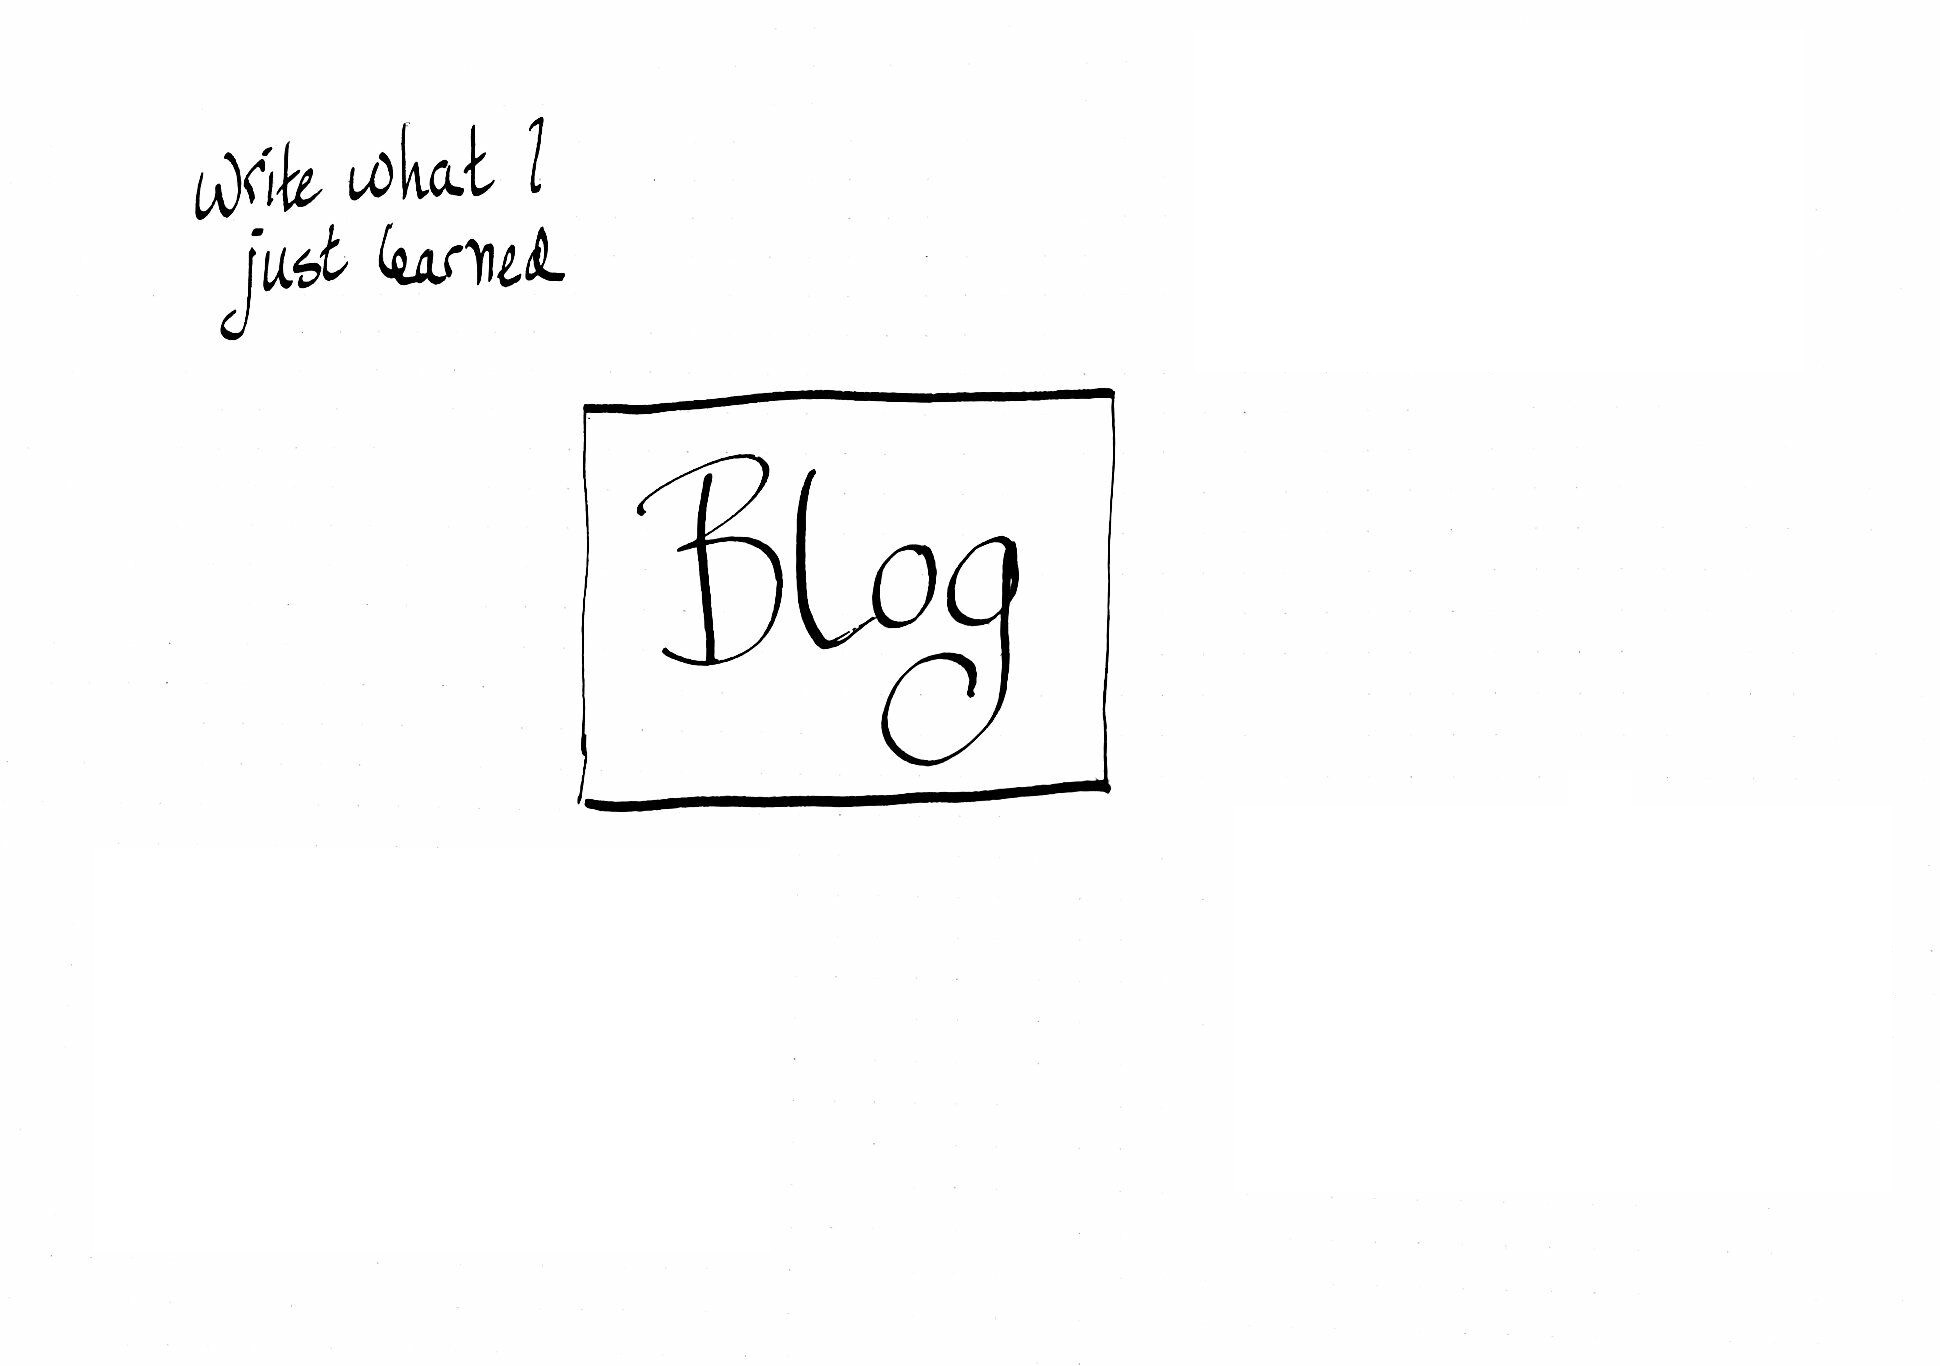 write what I
just learned
Blog